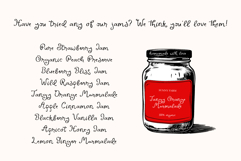 Have you tried any of our jams? We think you'll love them!
Pure Strawberry Jam
Organic Peach Preserve
Blueberry Bliss Jam
Wild Raspberry Jam
Tangy Orange Marmalade
Apple Cinnamon Jam
Blackberry Vanilla Jam
Apricot Honey Jam
Lemon Ginger Marmalade
homemade with love
Tangy Orange
Marmalade
100% organic